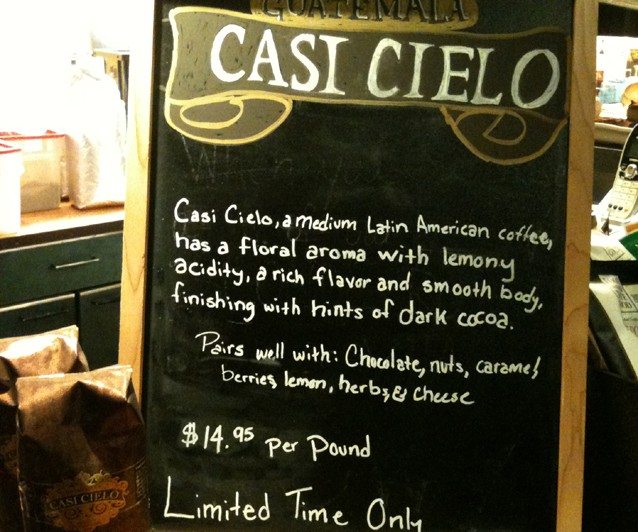 GUATEMALA
CASI CIELO
Casi Cielo, a medium Latin American coffee,
has a floral aroma with lemony
acidity, a rich flavor and smooth body,
finishing with hints of dark cocoa.
Pairs well with: Chocolate, nuts, caramel,
berries, lemon, herbs, & cheese
$14.95 per Pound
Limited Time Only
CASI CIELO